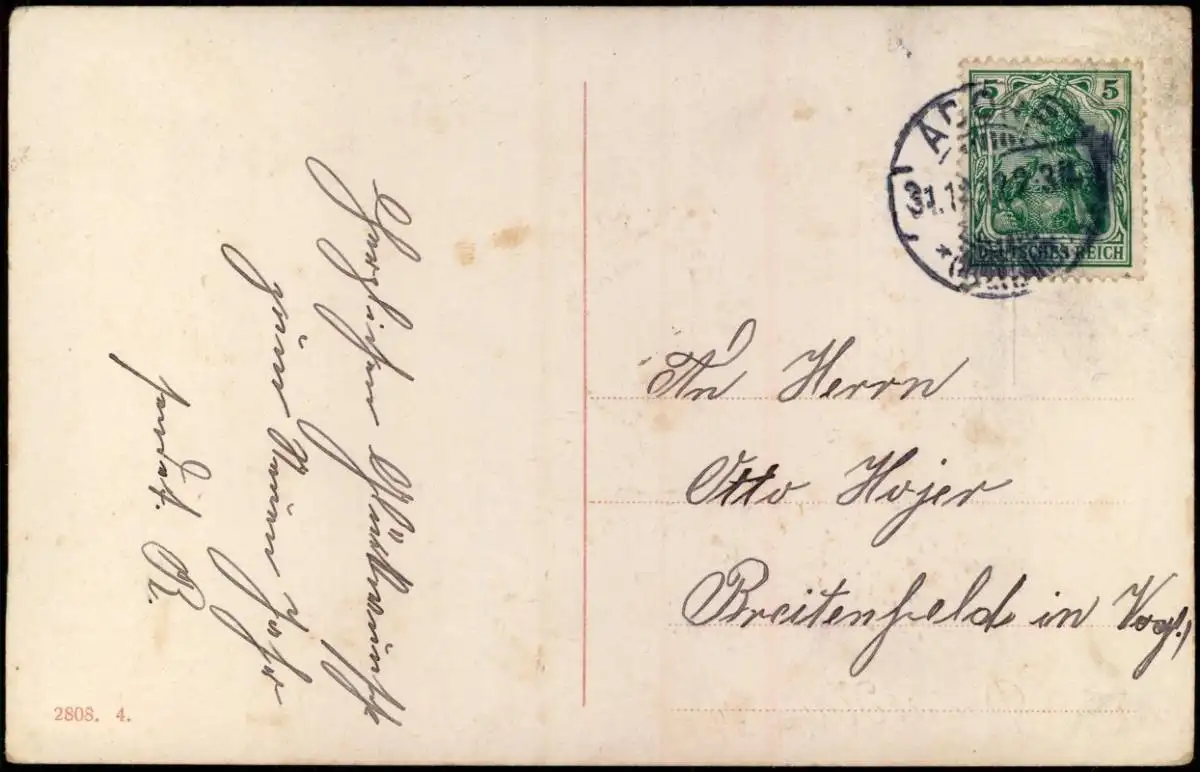 Herzlichen Glückwunsch
zum neuen Jahre
sendet. R.
5 5
31.12.12.3
DEUTSCHES REICH
An Herrn
Otto Hojer
Breitenfeld in Vogt.
2808. 4.